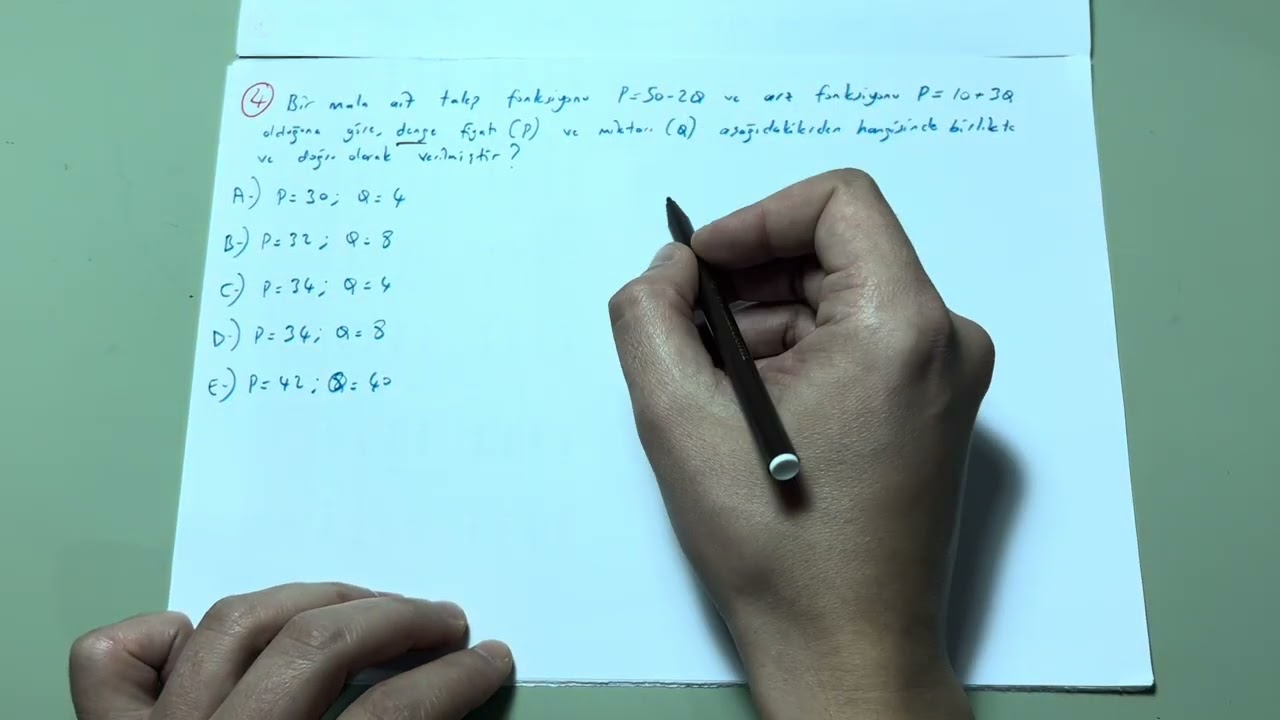 4 Bir mala ait talep fonksiyonu P=50-2Q ve arz fonksiyonu P=10+3Q
olduğuna göre, denge fiyatı (P) ve miktarı (Q) aşağıdakilerden hangisinde birlikte
ve doğru olarak verilmiştir?
A-) P=30; Q=4
B-) P=32; Q=8
C-) P=34; Q=4
D-) P=34; Q=8
E-) P=42; Q=40